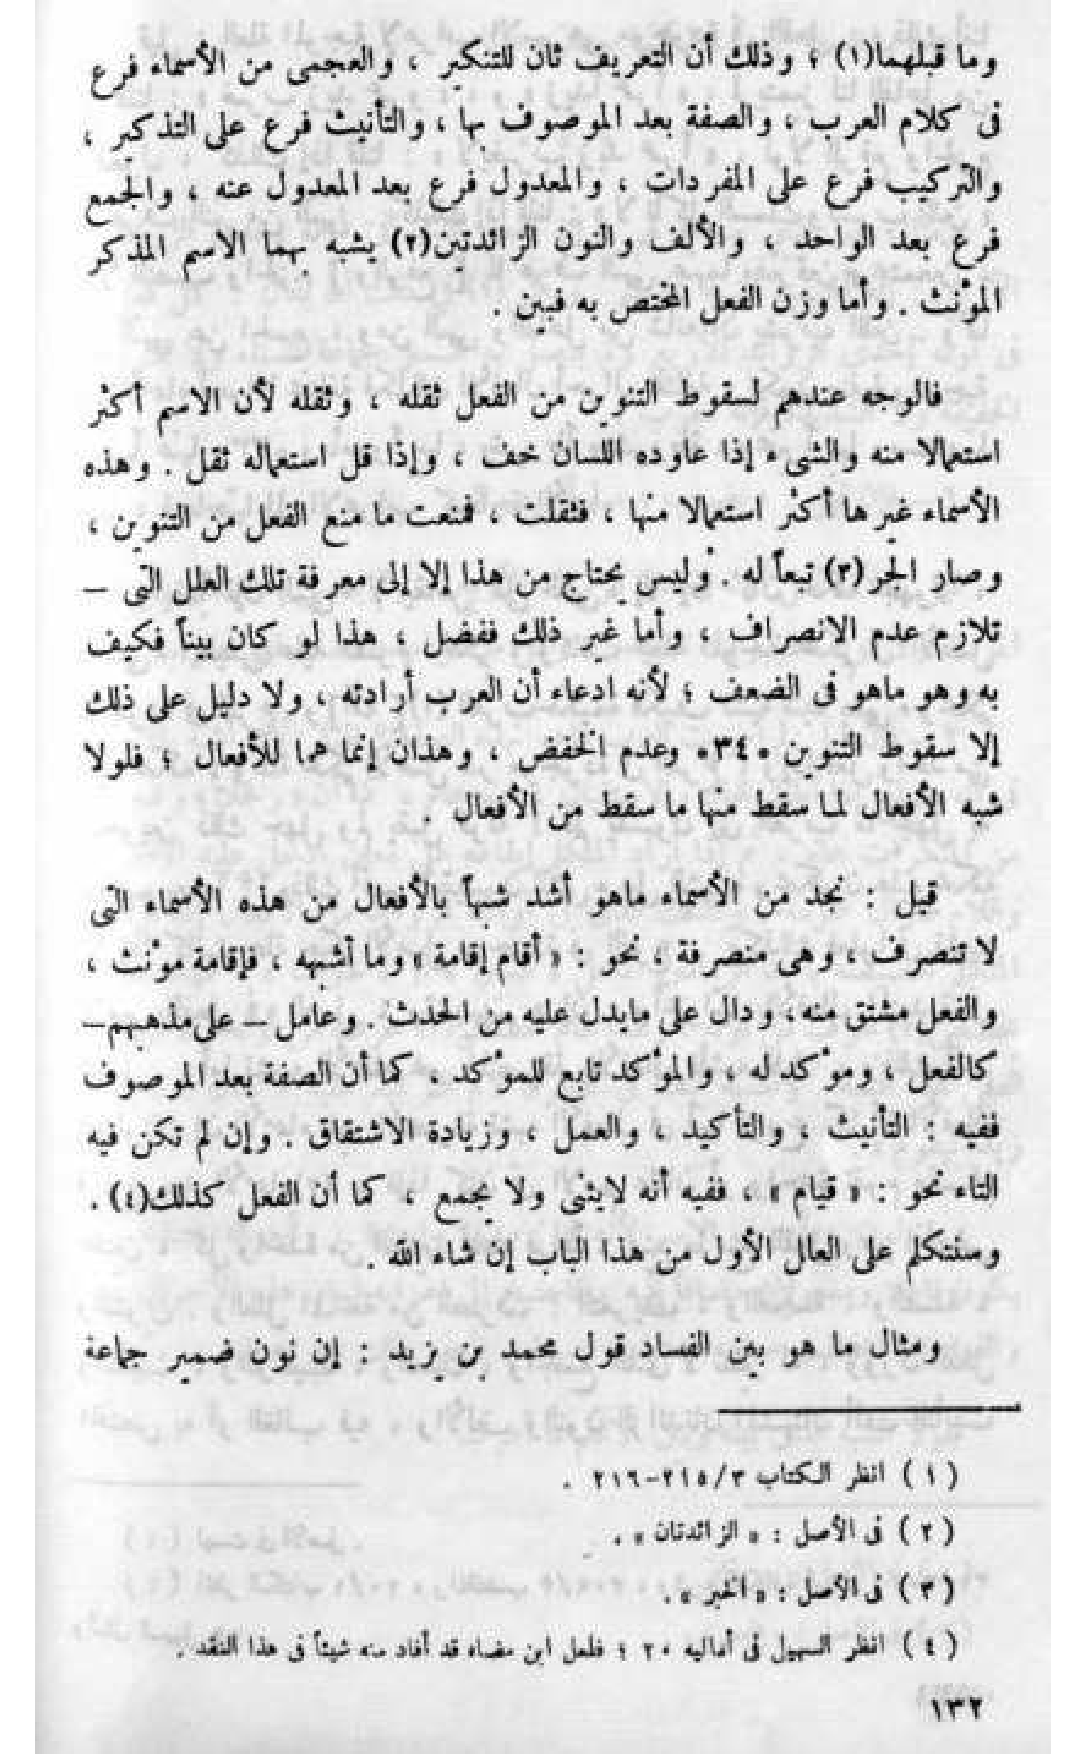 وما قبلهما(١) ؛ وذلك أن التعريف ثان للتنكير ، والعجمى من الأسماء فرع
فى كلام العرب ، والصفة بعد الموصوف بها ، والتأنيث فرع على التذكير ،
والتركيب فرع على المفردات ، والمعدول فرع بعد المعدول عنه ، والجمع
فرع بعد الواحد ، والألف والنون الزائدتين(٢) يشبه بهما الاسم المذكر
المؤنث . وأما وزن الفعل المختص به فبين .
فالوجه عندهم لسقوط التنوين من الفعل ثقله ، وثقله لأن الاسم أكثر
استعمالا منه والشىء إذا عاوده اللسان خف ، وإذا قل استعماله ثقل . وهذه
الأسماء غيرها أكثر استعمالا منها ، فثقلت ، فمنعت ما منع الفعل من التنوين ،
وصار الجر(٣) تبعاً له . وليس يحتاج من هذا إلا إلى معرفة تلك العلل التى –
تلازم عدم الانصراف ، وأما غير ذلك ففضل ، هذا لو كان بيناً فكيف
به وهو ماهو فى الضعف ؛ لأنه ادعاء أن العرب أرادته ، ولا دليل على ذلك
إلا سقوط التنوين «٣٤» وعدم الخفض ، وهذان إنما هما للأفعال ؛ فلولا
شبه الأفعال لما سقط منها ما سقط من الأفعال .
قيل : نجد من الأسماء ماهو أشد شبهاً بالأفعال من هذه الأسماء التى
لا تنصرف ، وهى منصرفة ، نحو : « أقام إقامة » وما أشبهه ، فإقامة مؤنث ،
والفعل مشتق منه ، ودال على مايدل عليه من الحدث . وعامل – على مذهبهم –
كالفعل ، ومؤكد له ، والمؤكد تابع للمؤكد ، كما أن الصفة بعد الموصوف
ففيه : التأنيث ، والتأكيد ، والعمل ، وزيادة الاشتقاق . وإن لم تكن فيه
التاء نحو : « قيام » ، ففيه أنه لايثنى ولا يجمع ، كما أن الفعل كذلك(٤) .
وسنتكلم على العلل الأول من هذا الباب إن شاء الله .
ومثال ما هو بين الفساد قول محمد بن يزيد : إن نون ضمير جماعة
( ١ ) انظر الكتاب ٢١٥/٣–٢١٦ .
( ٢ ) فى الأصل : « الزائدتان » .
( ٣ ) فى الأصل : « الخبر » .
( ٤ ) انظر السهيلى فى أماليه ٢٠ ؛ فلعل ابن مضاء قد أفاد منه شيئاً فى هذا النقد .
١٣٢